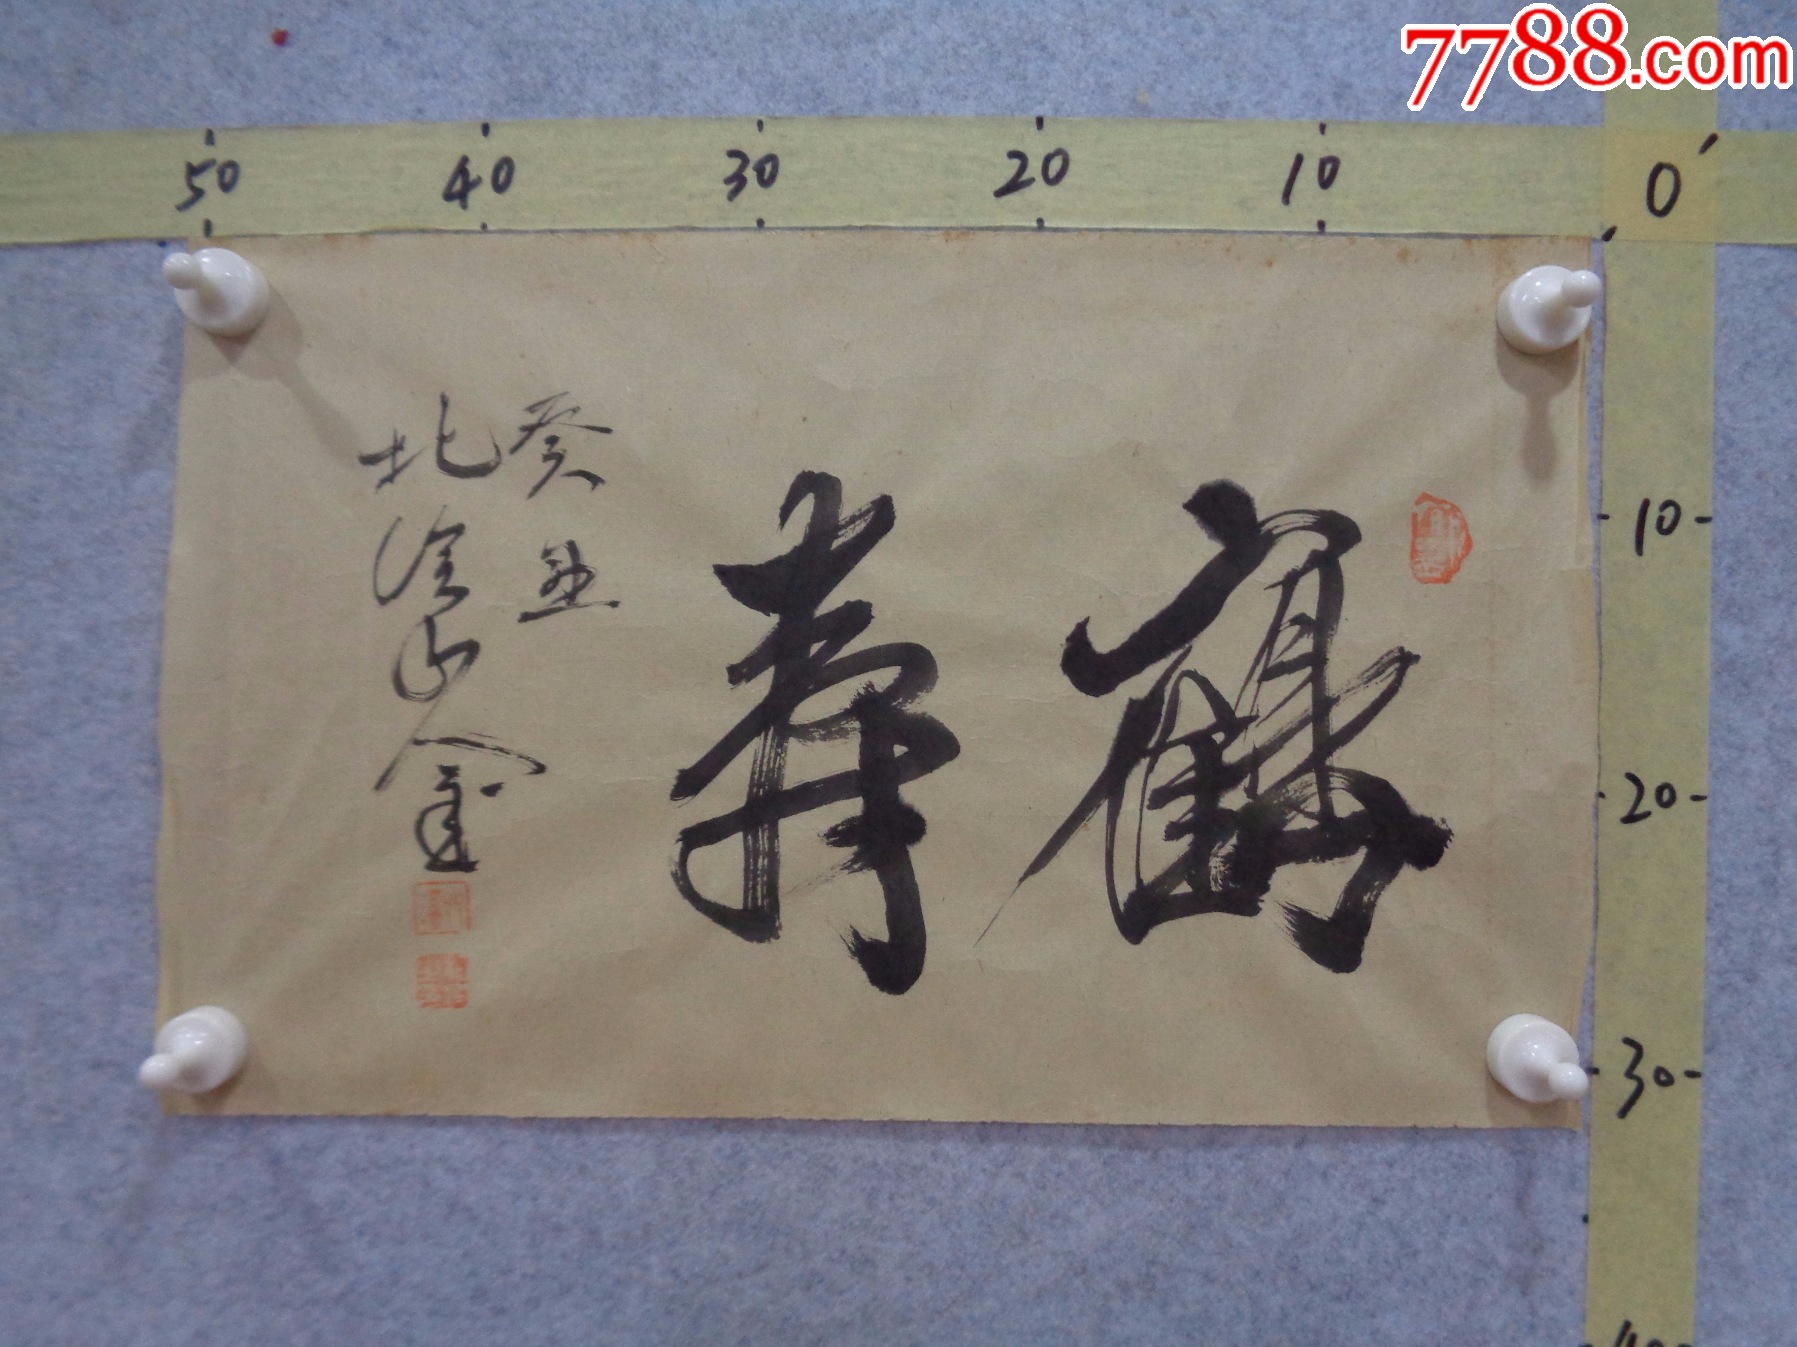 7788.com
50 40 30 20 10 0
10
20
30
40
鶴寿
癸丑
北塗山人